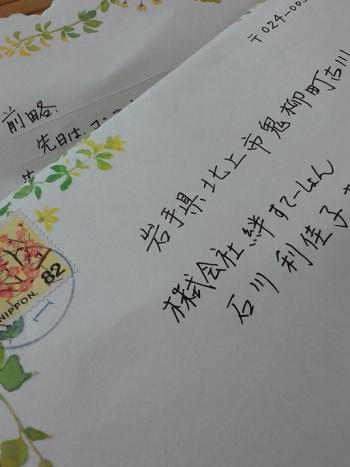 〒024-00
岩手県北上市鬼柳町古川
株式会社絆すてーしょん
石川利佳子
前略
先日は、
82
NIPPON